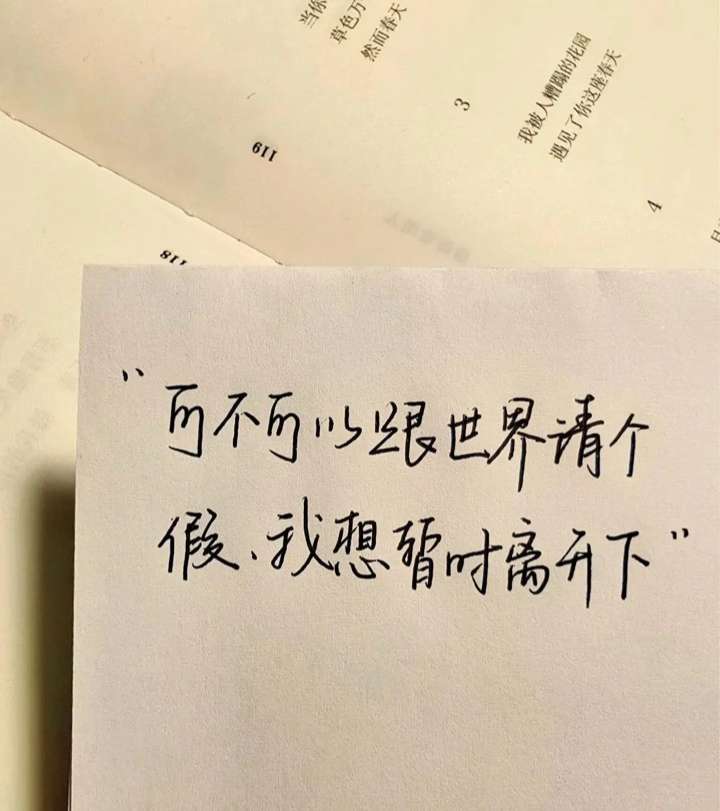 当你
草色万
然而春天
3
我被人糟蹋的花园
遇见了你这座春天
4
119
118
“可不可以跟世界请个
假、我想暂时离开下”